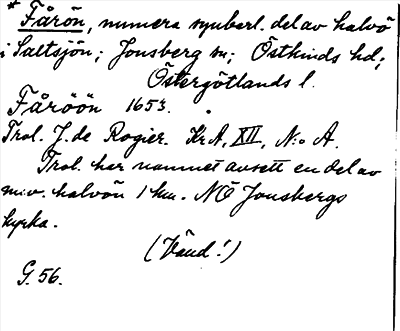 * Fårön, numera synbarl. del av halvö
i Saltsjön; Jonsberg sn; Östkinds hd;
Östergötlands l.
Fåröön 1653.
Trol. J. de Rogier. KrA, XII, N:o A.
Trol. har namnet avsett en del av
m:v. halvön 1 km. NÖ Jonsbergs
kyrka.
(Vänd!)
G. 56.